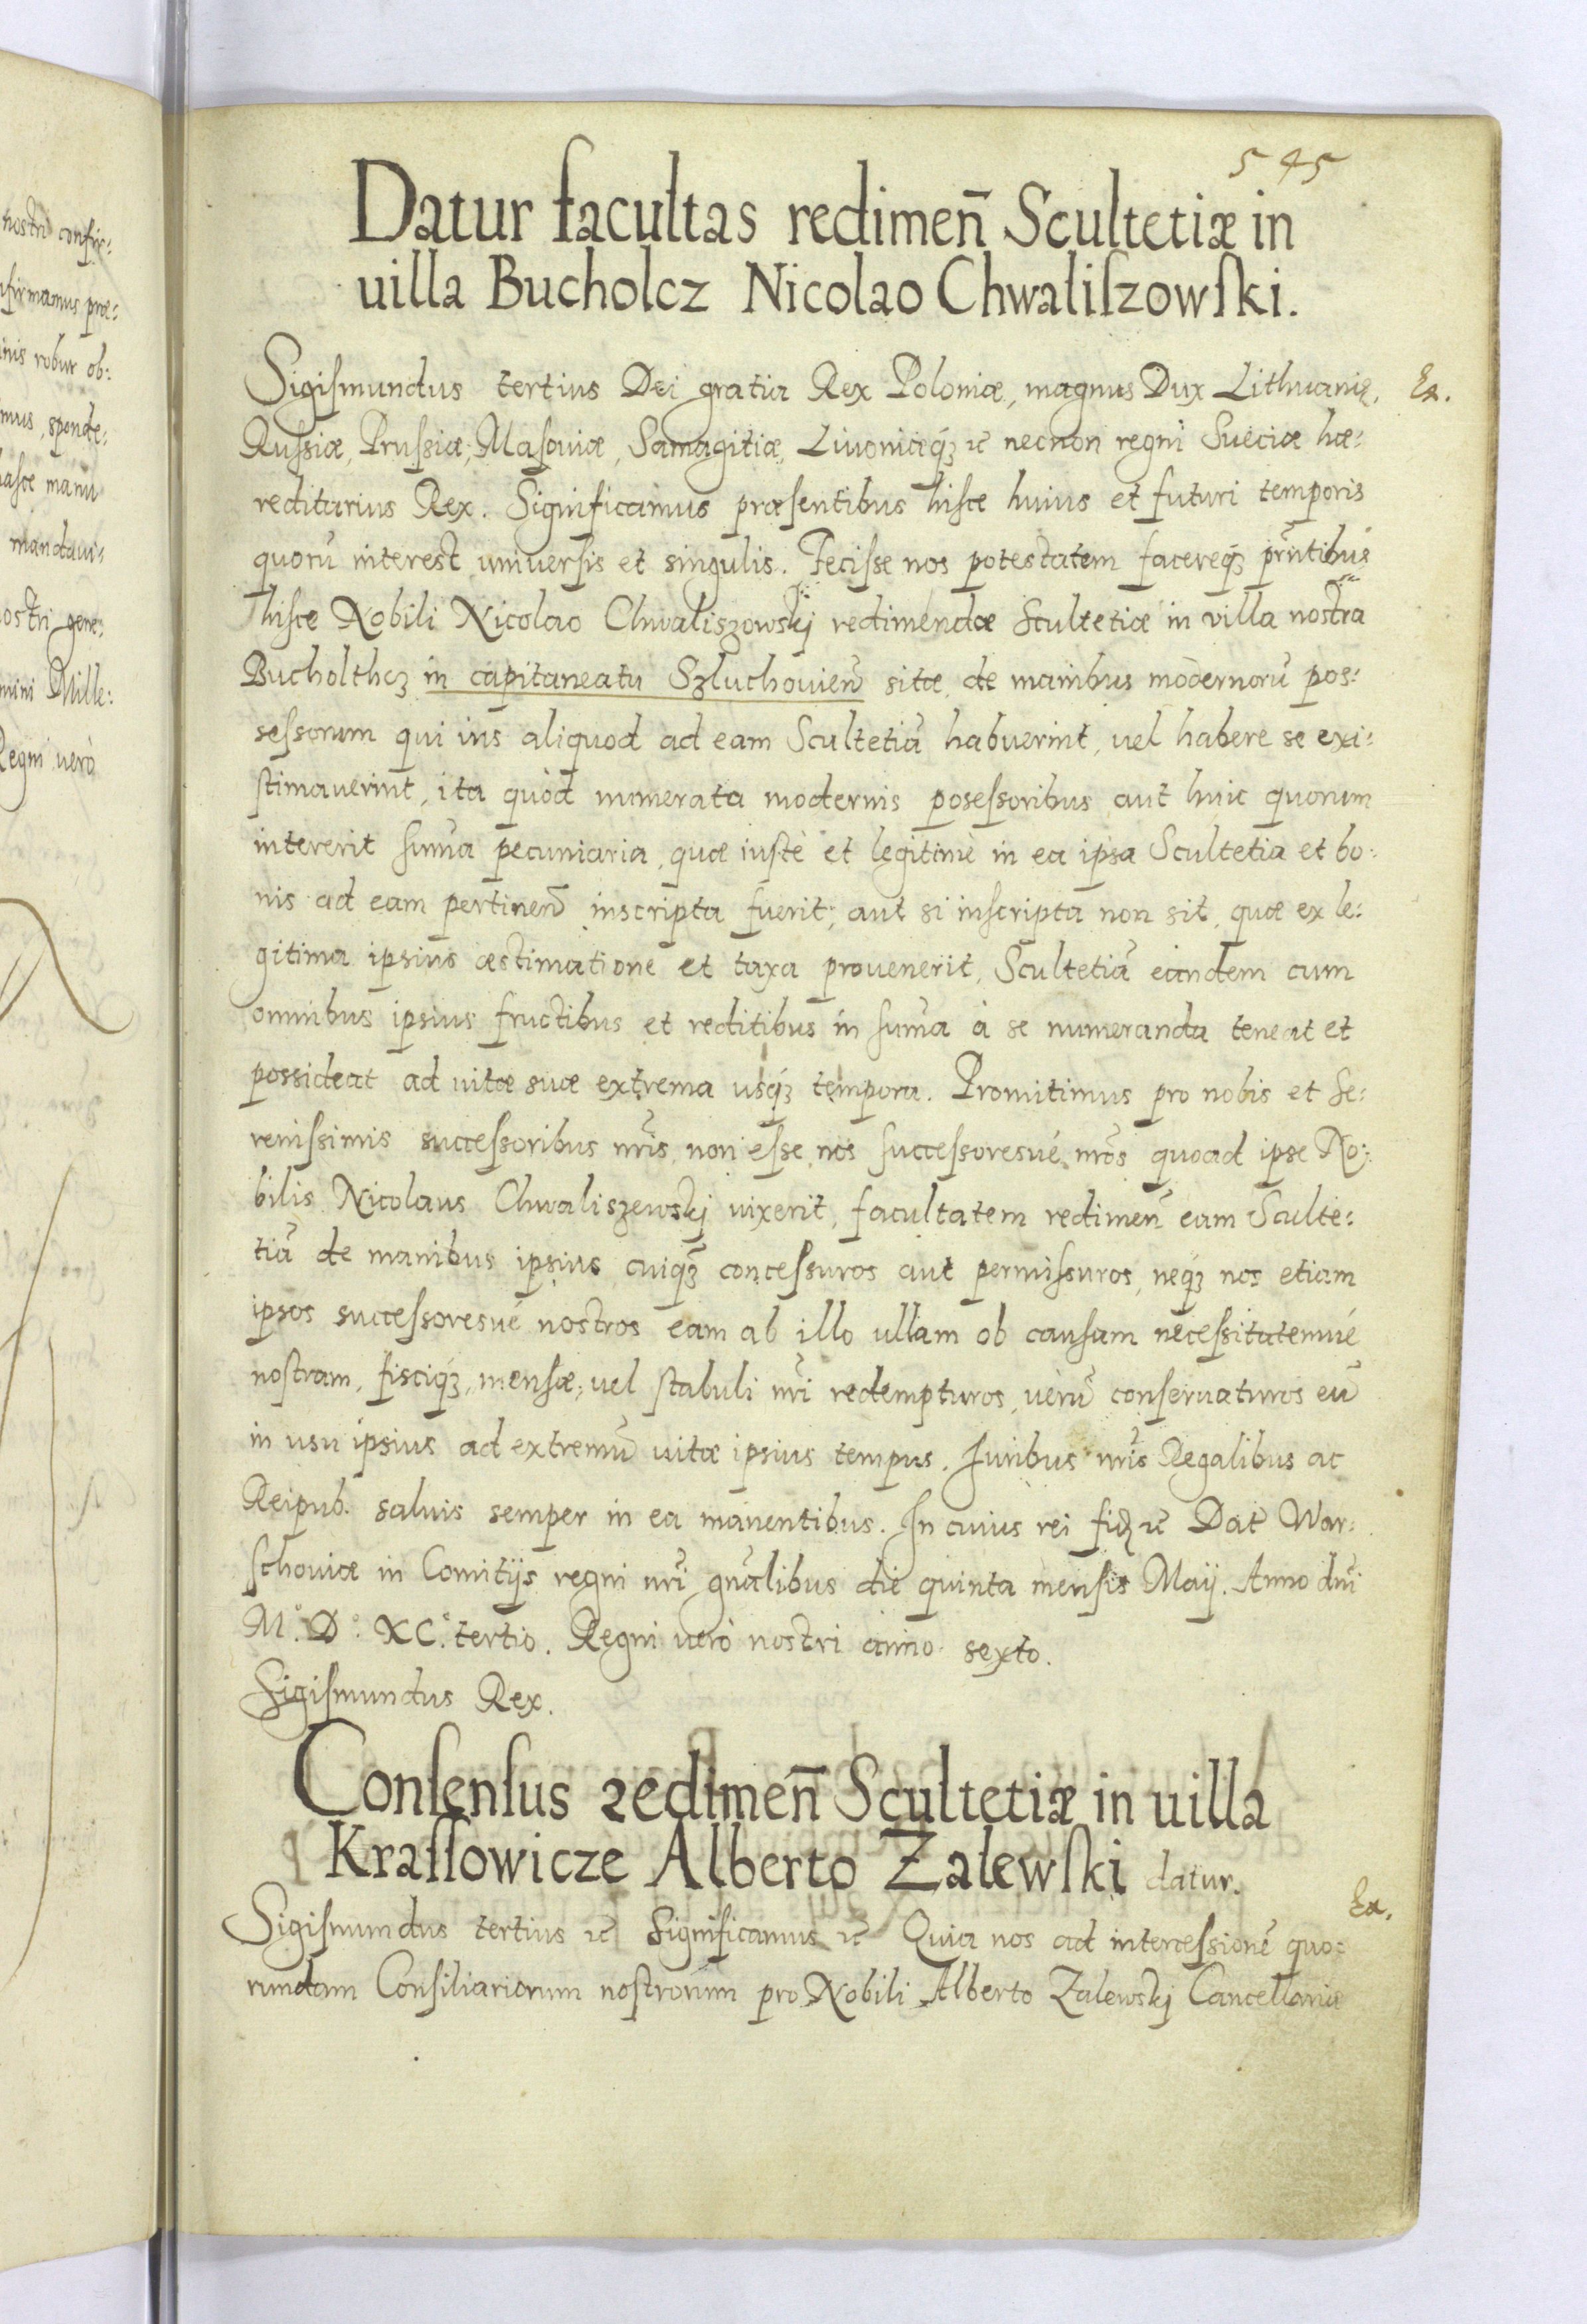 545
Datur facultas redimen̄ Scultetiæ in
uilla Bucholcz Nicolao Chwaliſzowſki.
Sigiſmundus tertius Dei gratia Rex Poloniæ, magnus Dux Lithuanię, Ex.
Ruſsiæ, Pruſsiæ, Maſouiæ, Samagitiæ, Liuoniæq́ꝫ ꝛc necnon regni Sueciæ hæ:
reditarius Rex. Significamus præſentibus hiſce huius et futuri temporis
quorū interest uniuerſis et singulis. Feciſse nos potestatem facereq́ꝫ pr̃ntibus
hiſce Nobili Nicolao Chwaliszowskj redimendæ Scultetiæ in villa nostra
Bucholthcz in capitaneatu Szluchouien̄ sitæ, de manibus modernorū pos:
seſsorum qui ius aliquod ad eam Scultetiā habuerint, uel habere se exi:
ſtimauerint, ita quòd numerata modernis poseſsoribus aut huic quorum
intererit sum̄a pecuniaria, quæ iuſtè et legitimè in ea ipsa Scultetia et bo:
nis ad eam pertinen̄ inscripta fuerit, aut si inſcripta non sit, quæ ex le:
gitima ipsius æstimatione et taxa prouenerit, Scultetiā eandem cum
omnibus ipsius fructibus et reditibus in sum̄a à se numeranda teneat et
possideat ad uitæ suæ extrema usq́ꝫ tempora. Promitimus pro nobis et Se:
reniſsimis succeſsoribus nr̄is, non eſse nos ſucceſsoresué nr̄os quoad ipse No:
bilis Nicolaus Chwaliszewskj uixerit, facultatem redimen̄ eam Sculte:
tiā de manibus ipsius cuiq́ꝫ conceſsuros aut permiſsuros, neq́ꝫ nos etiam
ipsos succeſsoresué nostros eam ab illo ullam ob cauſam neceſsitatemué
noſtram, fisciq́ꝫ, menſæ, uel ſtabuli nr̄i redempturos, uerū conſeruaturos eū
in usu ipsius ad extremū uitæ ipsius tempus. Iuribus nr̄is Regalibus ac
Reipub. saluis semper in ea manentibus. In cuius rei fidꝫ ꝛc Dat̄ War:
ſchouiæ in Comitijs regni nr̄i gn̄alibus die quinta menſis Maij. Anno dn̄i
M.° D.° XC.° tertio. Regni uerò nostri anno sexto.
Sigiſmundus Rex.
Conſenſus redimen̄ Scultetiæ in uilla
Kraſſowicze Alberto Zalewſki datur.
Ex.
Sigiſmundus tertius ꝛc Significamus ꝛc Quia nos ad interceſsionē quo:
rundam Consiliariorum noſtrorum pro Nobili Alberto Zalewskj Cancellariæ
nostri confir:
firmamus præ:
inis robur ob:
mus, spende:
haſce manu
mandaui:
nostri gene:
mini Mille:
Regni uerò